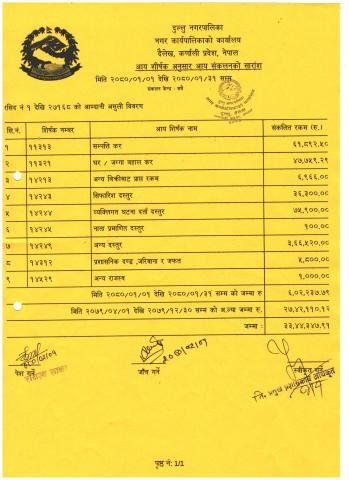 दुल्लु नगरपालिका
नगर कार्यपालिकाको कार्यालय
दैलेख, कर्णाली प्रदेश, नेपाल
आय शीर्षक अनुसार आय संकलनको सारांश
मिति २०८०/०१/०१ देखि २०८०/०१/३१ सम्म
संकलन केन्द्र - सबै
रसिद नं १ देखि २७१६८ को आम्दानी असुली विवरण
सि.नं. शिर्षक नम्बर आय शिर्षक नाम संकलित रकम (रु.)
१ ११३१३ सम्पति कर ६१,८९२.५०
२ ११३२१ घर / जग्गा बहाल कर ४७,७५९.२९
३ १४२१३ अन्य बिक्रीबाट प्राप्त रकम ६,९६६.००
४ १४२४३ सिफारिश दस्तुर ३६,३००.००
५ १४२४४ व्यक्तिगत घटना दर्ता दस्तुर ७५,९००.००
६ १४२४५ नाता प्रमाणित दस्तुर १००.००
७ १४२४९ अन्य दस्तुर ३,६६,५२०.००
८ १४३१२ प्रशासनिक दण्ड ,जरिवाना र जफत ५,८००.००
९ १४५२९ अन्य राजस्व १,०००.००
मिति २०८०/०१/०१ देखि २०८०/०१/३१ सम्म को जम्मा रु. ६,०२,२३७.७९
मिति २०७९/०४/०१ देखि २०७९/१२/३० सम्म को अ.ल्या जम्मा रु. २७,४२,११०.१२
जम्मा : ३३,४४,३४७.९१
२०८०/०२/०१
पेश गर्ने जाँच गर्ने स्वीकृत गर्ने
नि. प्रमुख प्रशासकीय अधिकृत
पृष्ठ नं: 1/1